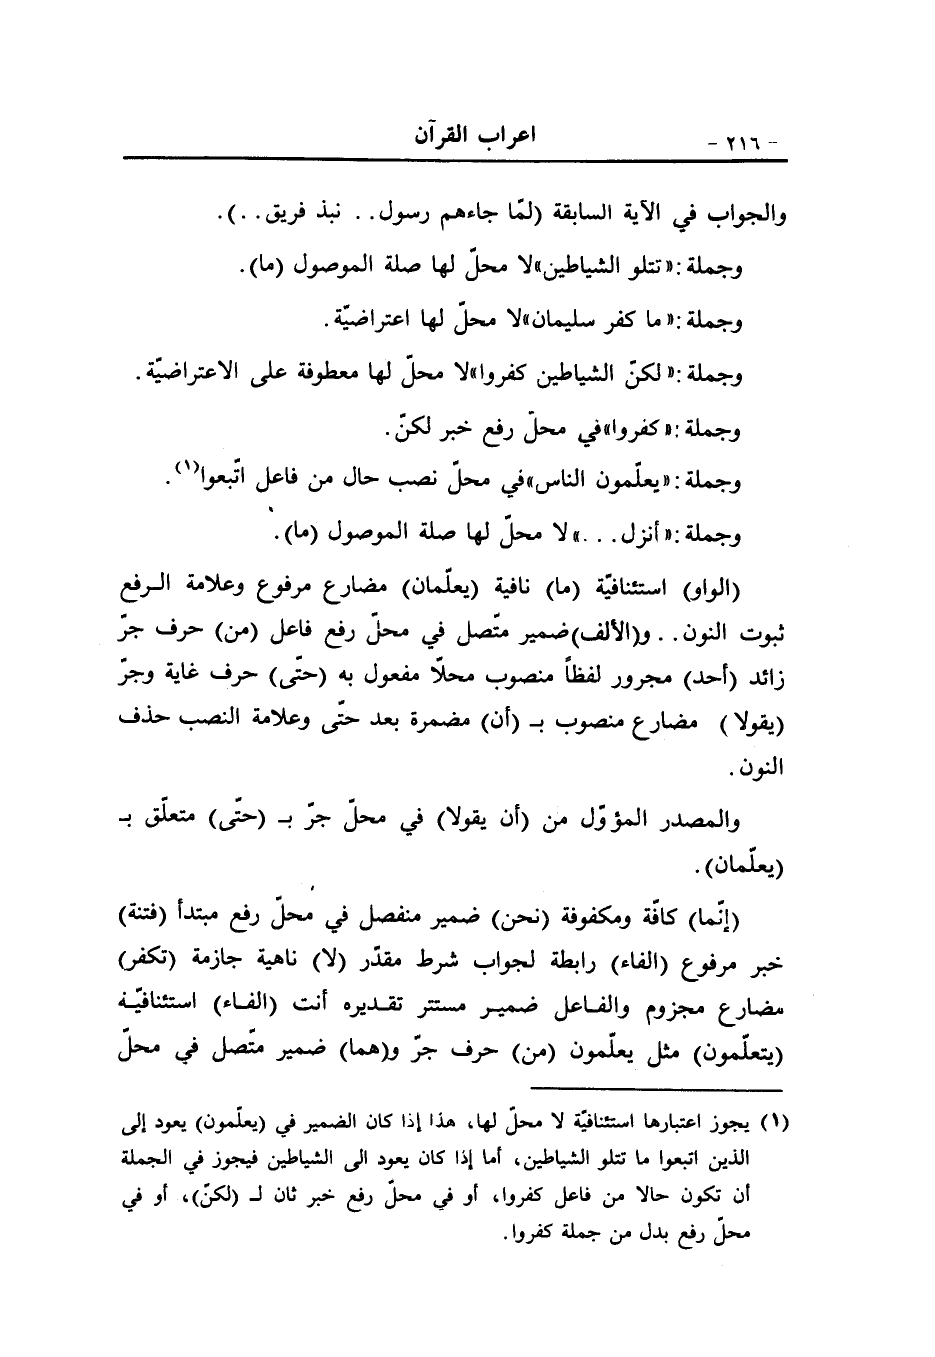 - ٢١٦ - اعراب القرآن
والجواب في الآية السابقة (لمّا جاءهم رسول . . نبذ فريق . .).
وجملة : «تتلو الشياطين» لا محلّ لها صلة الموصول (ما).
وجملة : « ما كفر سليمان» لا محلّ لها اعتراضيّة .
وجملة : « لكنّ الشياطين كفروا» لا محلّ لها معطوفة على الاعتراضيّة .
وجملة : « كفروا» في محلّ رفع خبر لكنّ .
وجملة : «يعلّمون الناس» في محلّ نصب حال من فاعل اتّبعوا(١) .
وجملة : « أنزل . . .» لا محلّ لها صلة الموصول (ما).
(الواو) استئنافيّة (ما) نافية (يعلّمان) مضارع مرفوع وعلامة الرفع
ثبوت النون . . و(الألف) ضمير متّصل في محلّ رفع فاعل (من) حرف جرّ
زائد (أحد) مجرور لفظاً منصوب محلّا مفعول به (حتّى) حرف غاية وجرّ
(يقولا ) مضارع منصوب بـ (أن) مضمرة بعد حتّى وعلامة النصب حذف
النون .
والمصدر المؤوّل من (أن يقولا) في محلّ جرّ بـ (حتّى) متعلّق بـ
(يعلّمان) .
(إنّما) كافّة ومكفوفة (نحن) ضمير منفصل في محلّ رفع مبتدأ (فتنة)
خبر مرفوع (الفاء) رابطة لجواب شرط مقدّر (لا) ناهية جازمة (تكفر)
مضارع مجزوم والفاعل ضمير مستتر تقديره أنت (الفاء) استئنافيّة
(يتعلّمون) مثل يعلّمون (من) حرف جرّ و(هما) ضمير متّصل في محلّ
(١) يجوز اعتبارها استئنافيّة لا محلّ لها، هذا إذا كان الضمير في (يعلّمون) يعود إلى
الذين اتبعوا ما تتلو الشياطين، أما إذا كان يعود الى الشياطين فيجوز في الجملة
أن تكون حالا من فاعل كفروا، أو في محلّ رفع خبر ثان لـ (لكنّ)، أو في
محلّ رفع بدل من جملة كفروا .